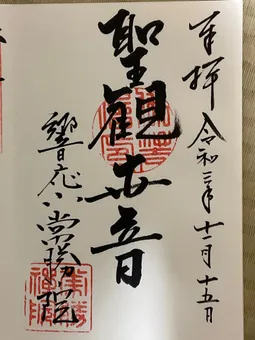 奉拝 令和三年十二月十五日
聖観世音
響応山常勝院